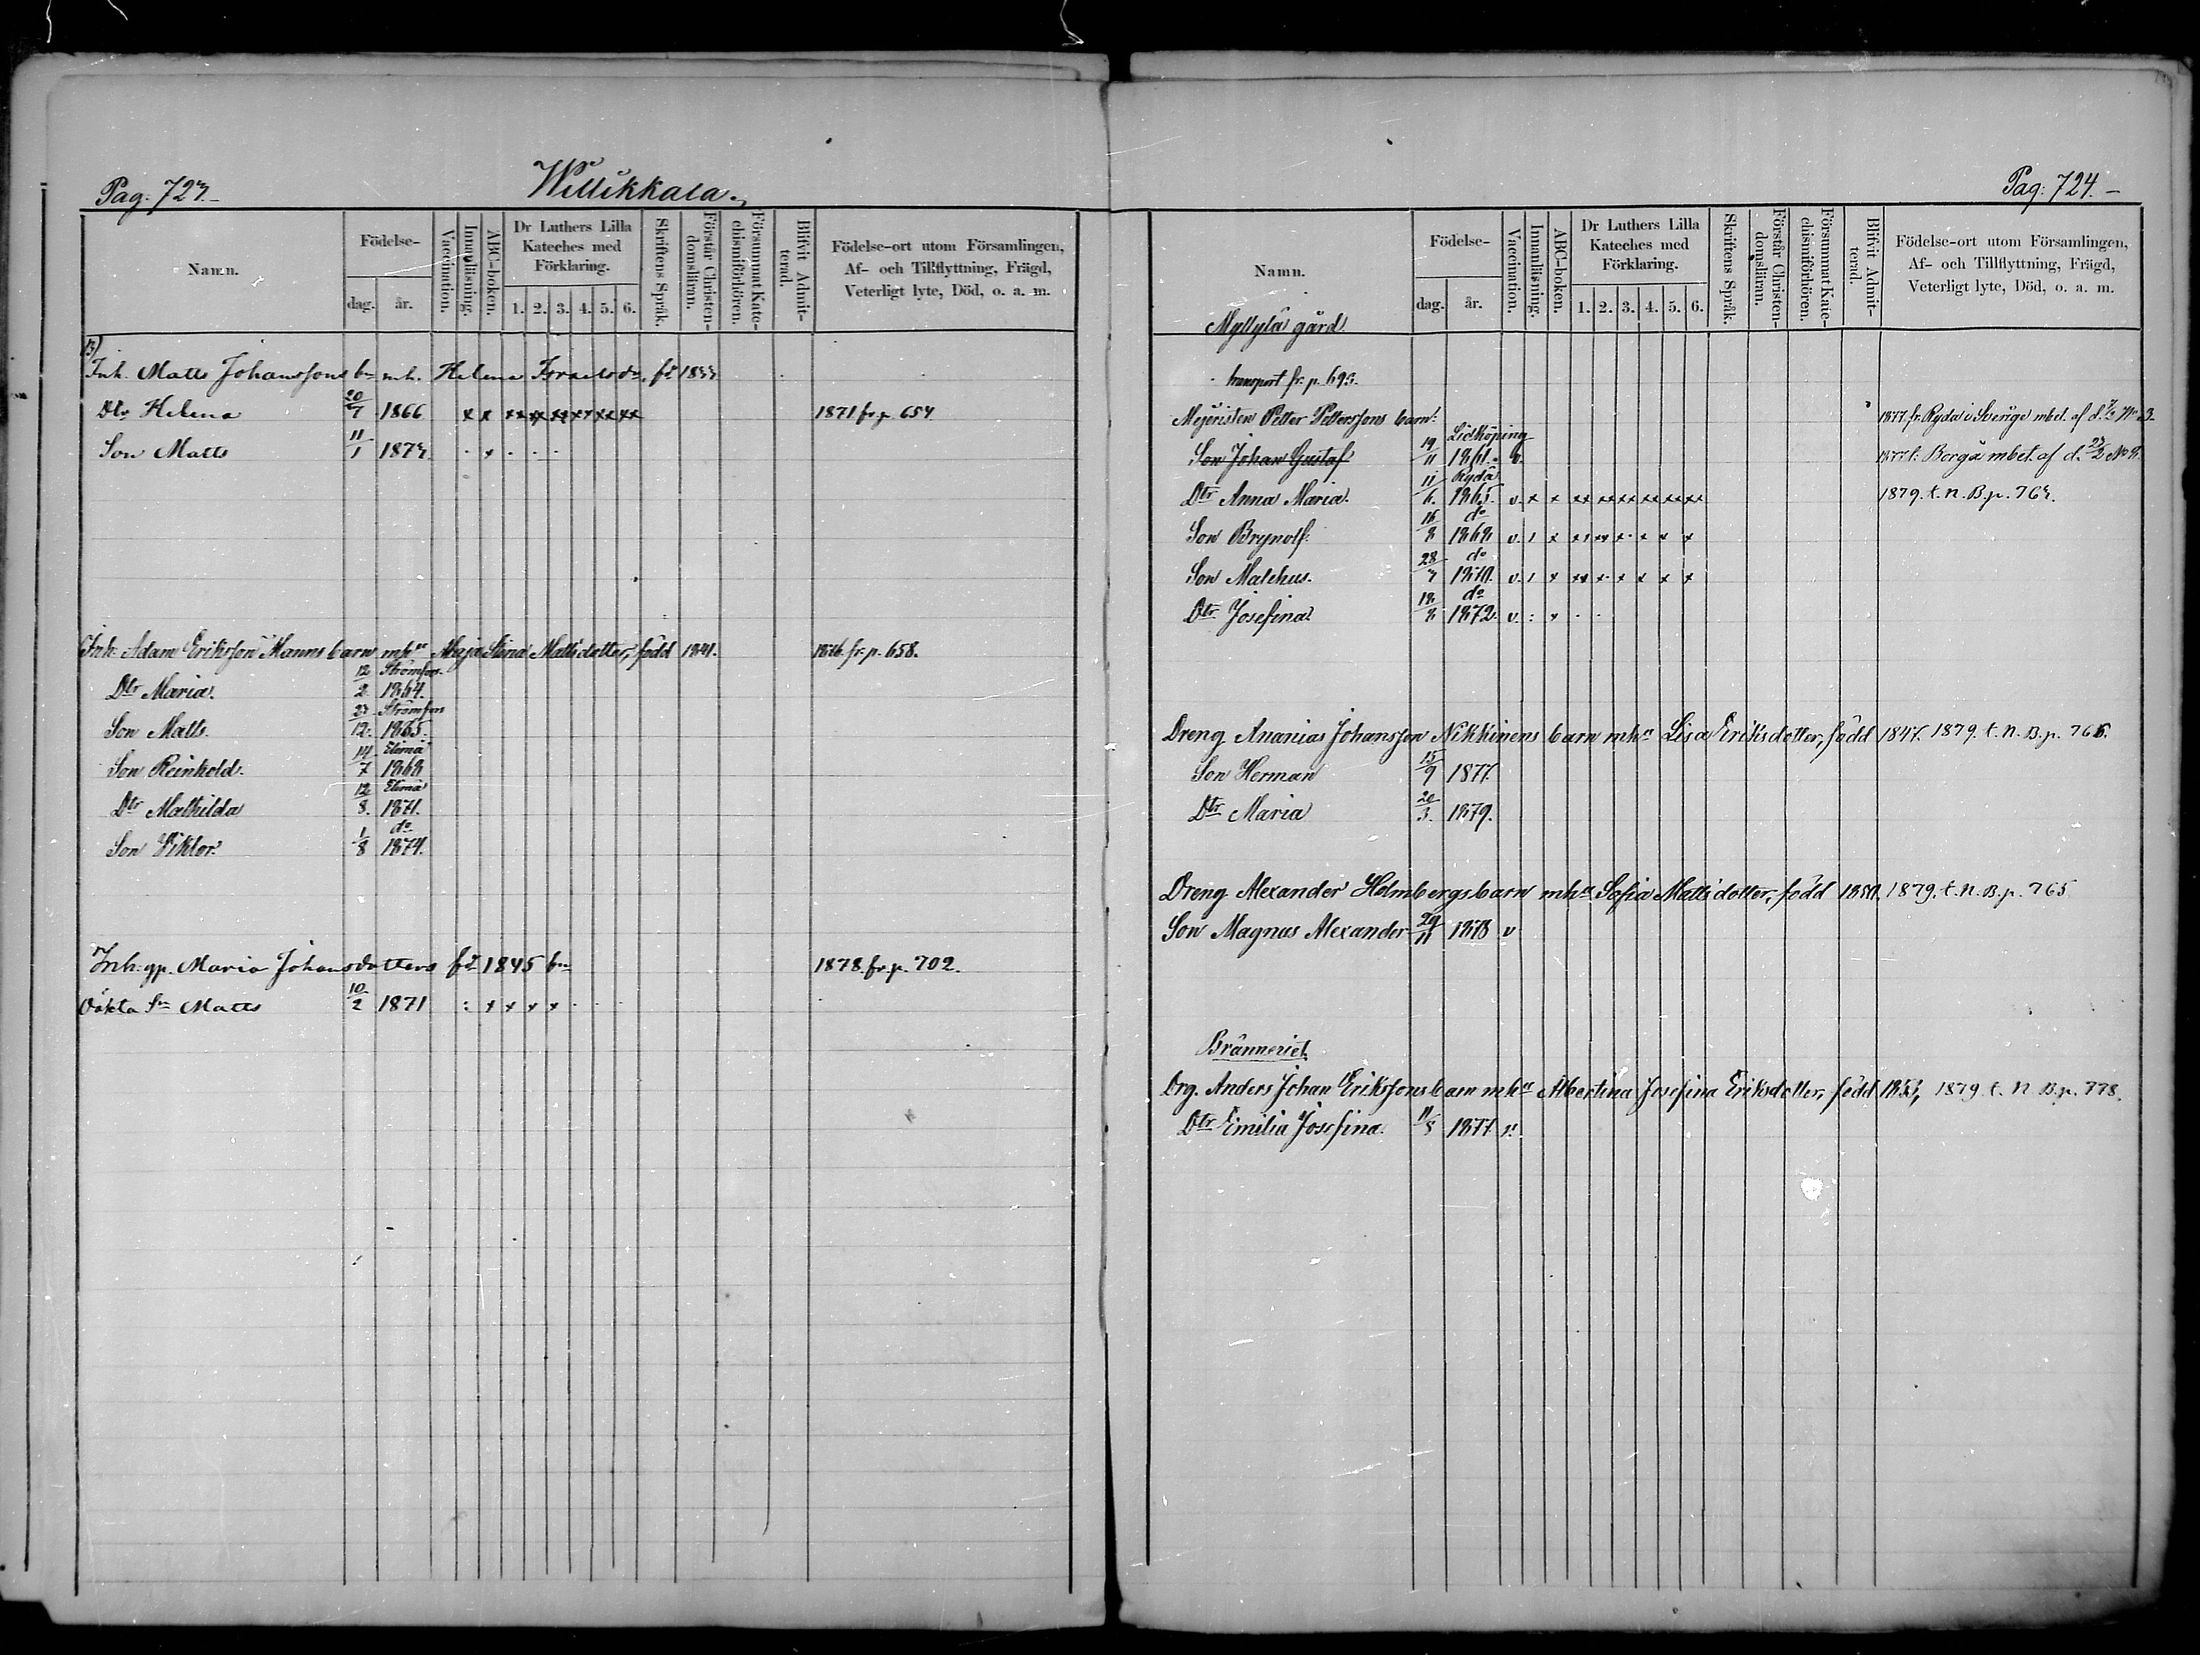 Pag. 723.
Willikkala.
Namn.
Födelse-
dag.
år.
Vaccination.
Innanläsning.
ABC-boken.
Dr Luthers Lilla
Kateches med
Förklaring.
1. 2. 3. 4. 5. 6.
Skriftens Språk.
Förstår Christen-
domsläran.
Försummat Kate-
chismiförhören.
Blifvit Admit-
terad.
Födelse-ort utom Församlingen,
Af- och Tillflyttning, Frägd,
Veterligt lyte, Död, o. a. m.
Inh. Matts Johanssons bn m.h. Helena Israelsdr, fd 1833
Dtr Helena 20/7 1866 x x xx xx xx xx xx xx 1871 fr. p. 654
Son Matts 11/1 1873 . x . . .
Inh. Adam Eriksson Manns barn mhu Maja Stina Mattsdotter, född 1841. 1876. fr. p. 658.
Dtr Maria. 12/2 Strömfors 1864.
Son Matts. 23/12 Strömfors 1865.
Son Reinhold. 14/7 Elimä 1868
Dtr Mathilda 12/8 Elimä 1871.
Son Viktor. 1/8 do 1874.
Inh. gp. Maria Johansdotters fd 1845 bn 1878 fr. p. 702.
Oäkta Sn Matts 10/2 1871 : x x x x .
Pag. 724.
Namn.
Födelse-
dag.
år.
Vaccination.
Innanläsning.
ABC-boken.
Dr Luthers Lilla
Kateches med
Förklaring.
1. 2. 3. 4. 5. 6.
Skriftens Språk.
Förstår Christen-
domsläran.
Försummat Kate-
chismiförhören.
Blifvit Admit-
terad.
Födelse-ort utom Församlingen,
Af- och Tillflyttning, Frägd,
Veterligt lyte, Död, o. a. m.
Myllylä gård.
transport fr. p. 693.
Mejeristen Petter Petterssons barn: 1877. fr. Ryda i Sverige mbet. af d. No 3.
Son Johan Gustaf 19/11 Lidköping 1861. v. 1877 t. Borgå mbet. af d. 23/2 No 8.
Dtr Anna Maria. 11/6 Ryda 1865. v. x x xx xx xx xx xx xx 1879. t. N. B. p. 763.
Son Brynolf. 16/8 do 1868 v. x x x x x x
Son Malchus. 28/7 do 1870. v. x x x x x x x
Dtr Josefina 18/8 do 1872. v : x . .
Dreng Ananias Johansson Nikkinens barn mhu Lisa Eriksdotter, född 1847. 1879. t. N. B. p. 766.
Son Herman 15/9 1877.
Dtr Maria 20/3 1879.
Dreng Alexander Holmbergs barn mhu Sofia Mattsdotter, född 1850. 1879. t. N. B. p. 765
Son Magnus Alexander 29/11 1878 v
Bränneriet.
Drg. Anders Johan Erikssons barn mhu Albertina Josefina Eriksdotter, född 1853, 1879. t. N. B. p. 778.
Dtr Emilia Josefina. 11/5 1877 v.